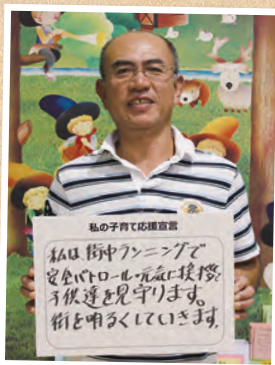 私の子育て応援宣言
私は、街中ランニングで
安全パトロール・元気に挨拶で
子供達を見守ります。
街を明るくしていきます。